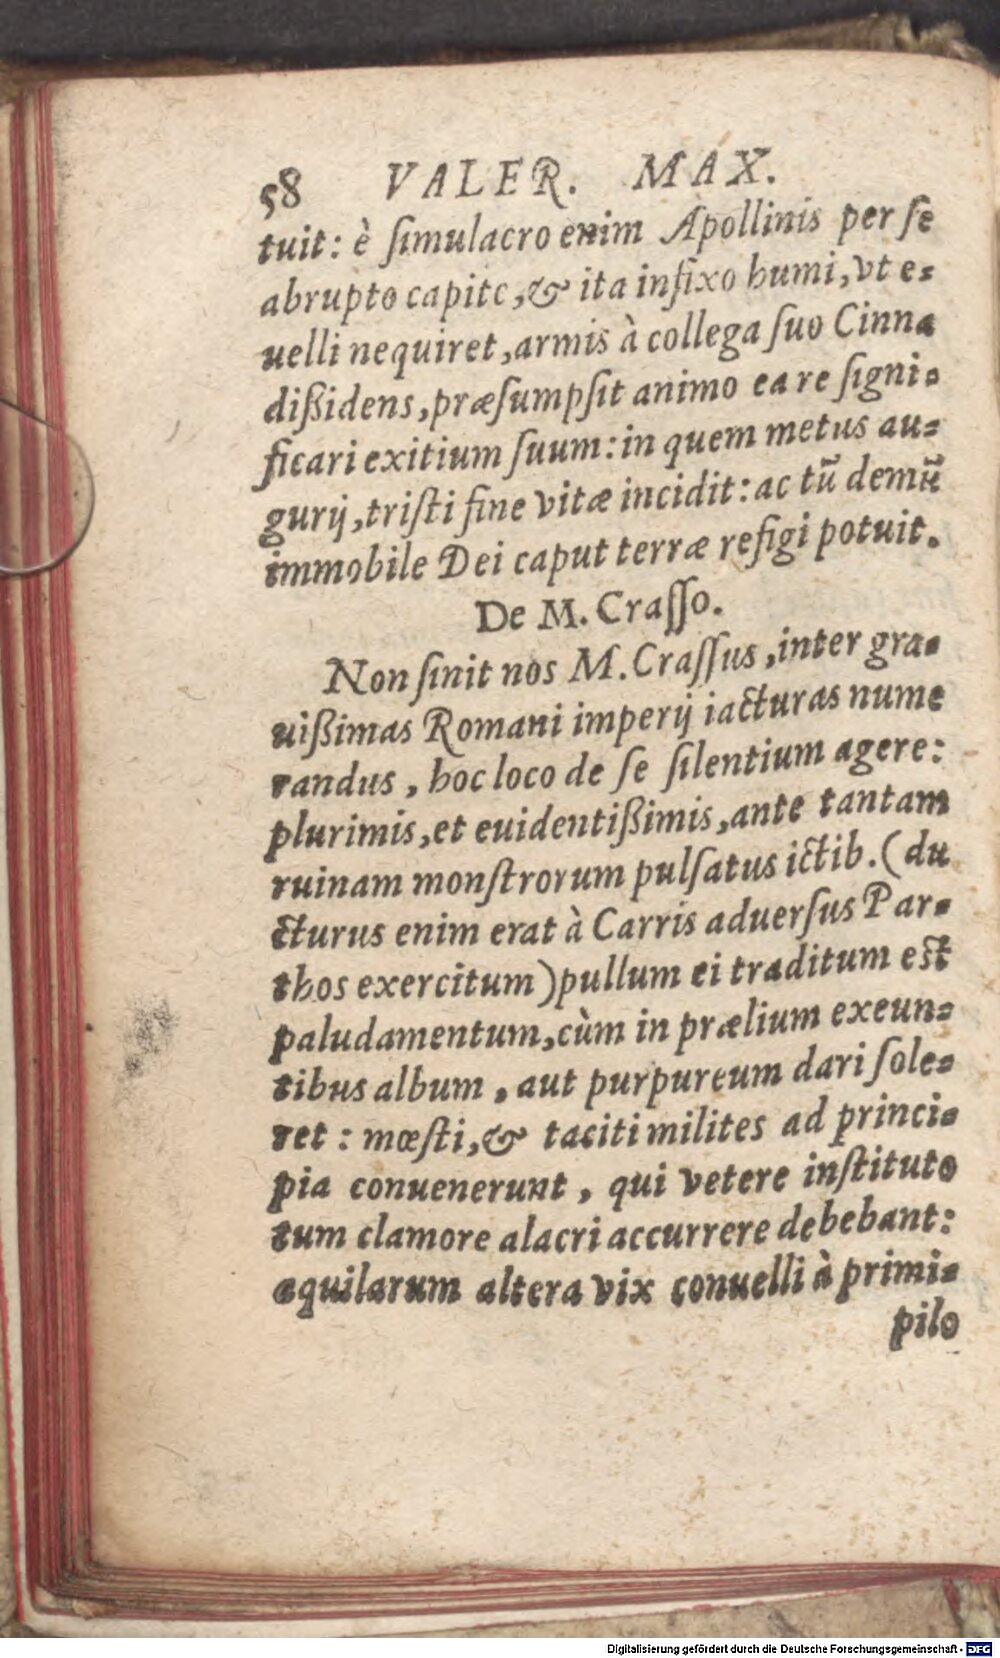 58 VALER. MAX.
tuit: è ſimulacro enim Apollinis per ſe
abrupto capite, & ita infixo humi, vt e-
uelli nequiret, armis à collega ſuo Cinna
dißidens, præſumpſit animo ea re ſigni-
ficari exitium ſuum: in quem metus au-
gurij, triſti fine vitæ incidit: ac tū demū
immobile Dei caput terræ refigi potuit.
De M. Craſſo.
Non ſinit nos M. Craſſus, inter gra-
uißimas Romani imperij iacturas nume
randus, hoc loco de ſe ſilentium agere:
plurimis, et euidentißimis, ante tantam
ruinam monſtrorum pulſatus ictib. (du
cturus enim erat à Carris aduerſus Par-
thos exercitum) pullum ei traditum eſt
paludamentum, cùm in prælium exeun-
tibus album, aut purpureum dari ſole-
ret: mœſti, & taciti milites ad princi-
pia conuenerunt, qui vetere inſtituto
tum clamore alacri accurrere debebant:
aquilarum altera vix conuelli à primi-
pilo
Digitalisierung gefördert durch die Deutsche Forschungsgemeinschaft - DFG